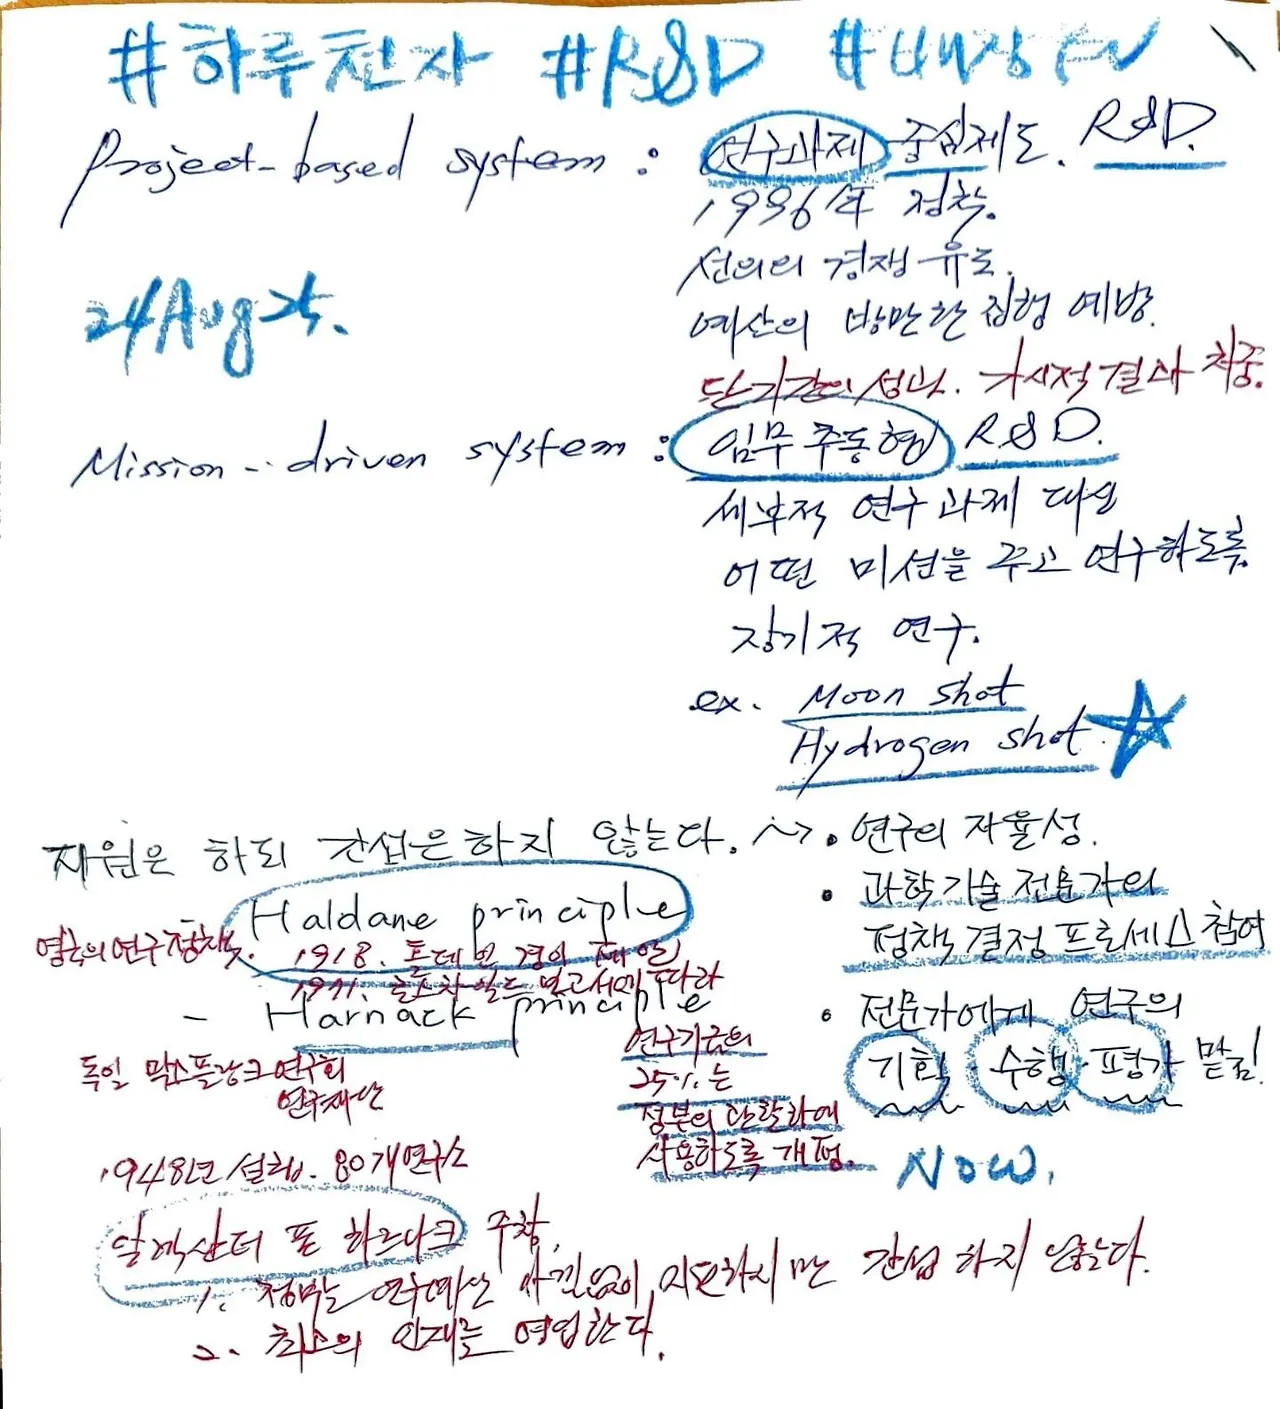 #하루천자 #R&D #배장TV
Project-based system : 연구과제 중심제도. R&D.
1996年 정착.
선의의 경쟁 유도.
24 Aug 25.
예산의 방만한 집행 예방.
단기간의 성과. 가시적 결과 치중.
Mission-driven system : 임무 주동형 R&D.
세부적 연구과제 대신
어떤 미션을 주고 연구하도록.
장기적 연구.
ex. Moon shot
Hydrogen shot.
지원은 하되 간섭은 하지 않는다. → • 연구의 자율성.
Haldane principle
영국의 연구정책.
1918. 홀데인 경이 제안
1971. 로스차일드 보고서에 따라
연구기금의
25%는
정부의 관할하에
사용하도록 개정.
• 과학기술 전문가의
정책결정 프로세스 참여
- Harnack principle
독일 막스플랑크 연구회
연구재단
1948년 설립. 80개 연구소
알렉산더 폰 하르나크 주창.
1. 정부는 연구예산 아낌없이 지원하지만 간섭하지 않는다.
2. 최고의 인재를 영입한다.
• 전문가에게 연구의
기획 · 수행 · 평가 맡김!
NOW.